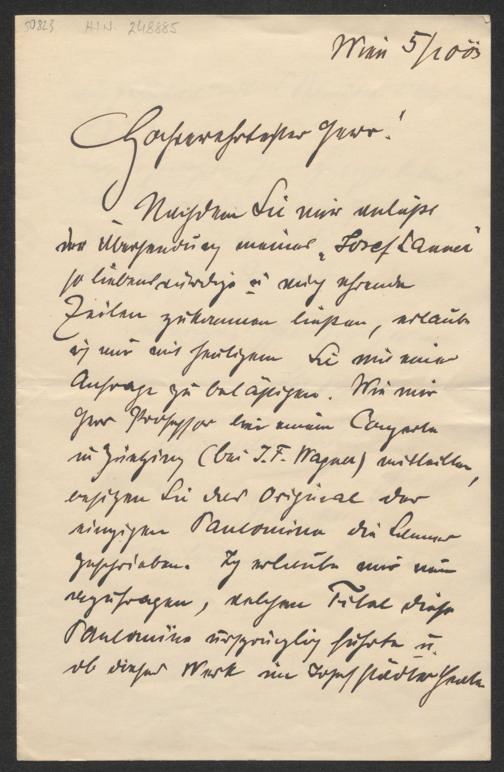 50823 H.I.N. 248885
Wien 5/
Hochverehrtester Herr!
Nachdem Sie mir anläßl
der Übersendung meines „Josef Lanner"
so liebenswürdige u mich ehrende
Zeilen zukommen ließen, erlaube
ich mir mit heutigem Sie mit einer
Anfrage zu belästigen. Wie mir
Herr Professor bei einem Conzerte
in Hietzing (bei J.F. Wagner) mittheilten,
besitzen Sie das Original der
einzigen Pantomime die Lanner
geschrieben. Ich erlaube mir nun
anzufragen, welchen Titel diese
Pantomime ursprünglich führte u.
ob dieses Werk im Josefstädtertheater